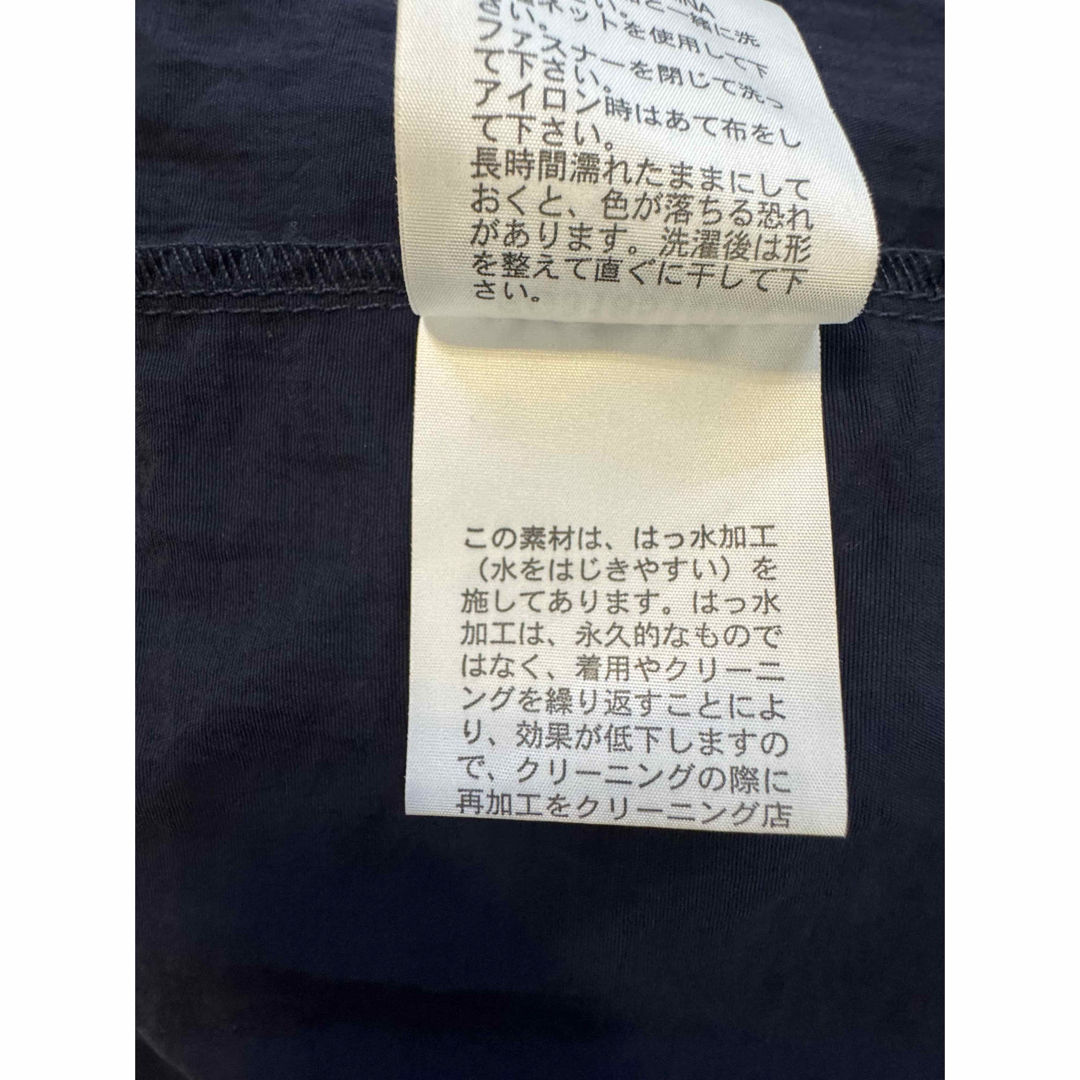 INA
と一緒に洗
さい。
ネットを使用して下
さい。
ファスナーを閉じて洗っ
て下さい。
アイロン時はあて布をし
て下さい。
長時間濡れたままにして
おくと、色が落ちる恐れ
があります。洗濯後は形
を整えて直ぐに干して下
さい。
この素材は、はっ水加工
（水をはじきやすい）を
施してあります。はっ水
加工は、永久的なもので
はなく、着用やクリーニ
ングを繰り返すことによ
り、効果が低下しますの
で、クリーニングの際に
再加工をクリーニング店